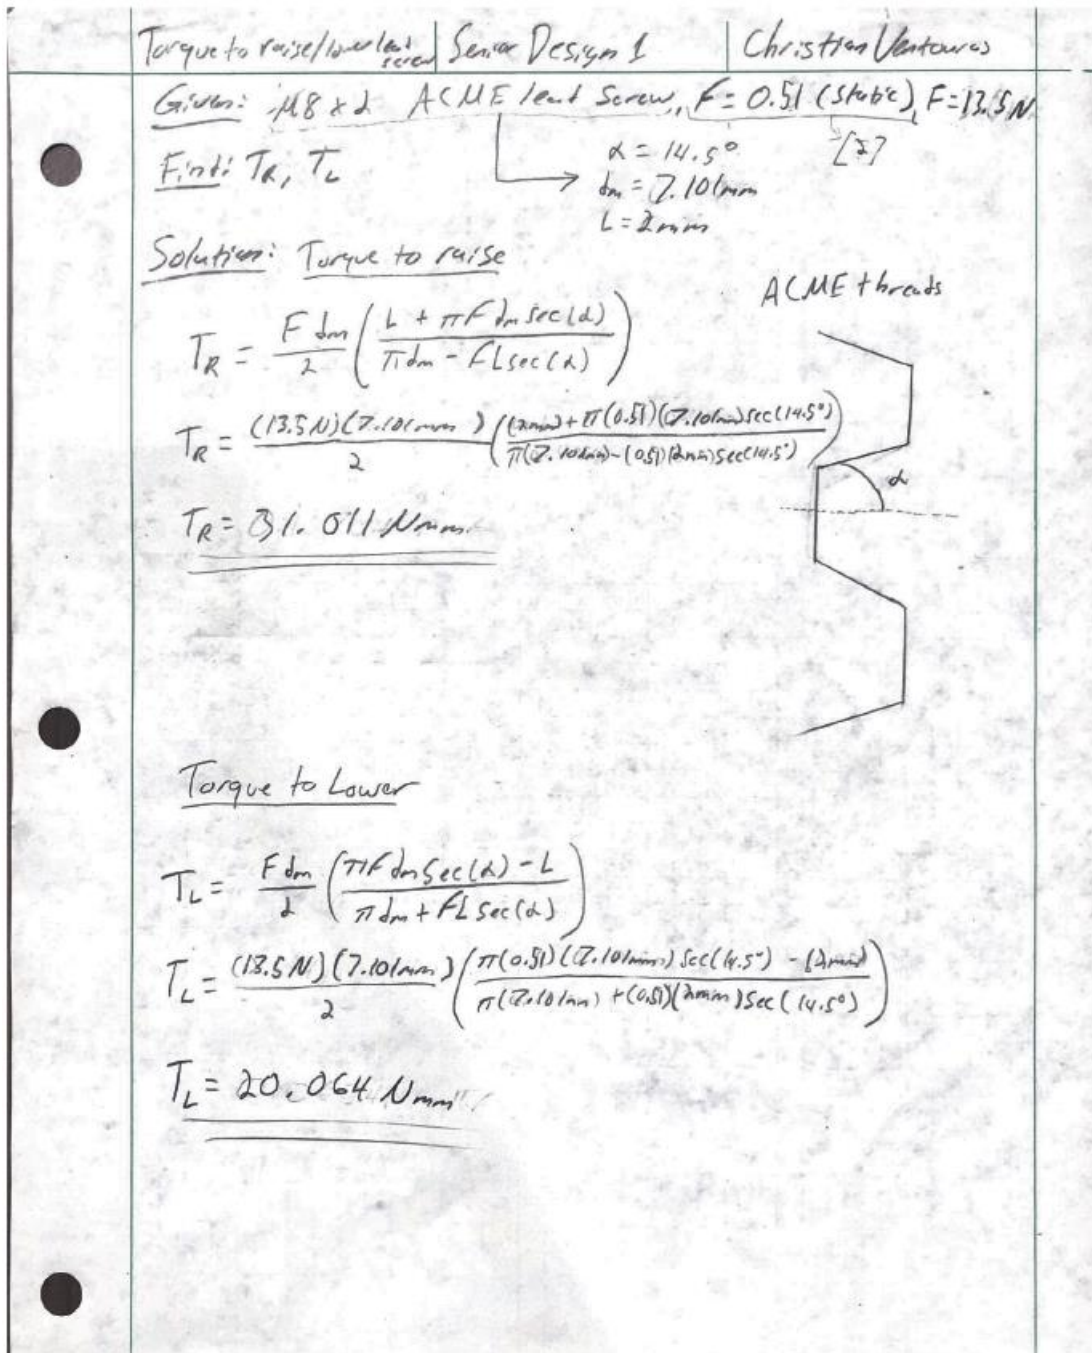 Torque to raise/lower lead screw | Senior Design 1 | Christian Ventouras
Given: M8 x 2 ACME lead screw, f = 0.51 (static), F = 13.5 N
α = 14.5°
Find: T_R, T_L
d_m = 7.101mm
L = 2mm
Solution: Torque to raise
ACME threads
T_R = F d_m / 2 ( L + π f d_m sec(α) / π d_m - f L sec(α) )
T_R = (13.5 N)(7.101mm) / 2 ( (2mm) + π(0.51)(7.101mm) sec(14.5°) / π(7.101mm) - (0.51)(2mm) sec(14.5°) )
α
T_R = 31.011 Nmm
Torque to Lower
T_L = F d_m / 2 ( π f d_m sec(α) - L / π d_m + f L sec(α) )
T_L = (13.5 N)(7.101mm) / 2 ( π(0.51)(7.101mm) sec(14.5°) - (2mm) / π(7.101mm) + (0.51)(2mm) sec(14.5°) )
T_L = 20.064 Nmm